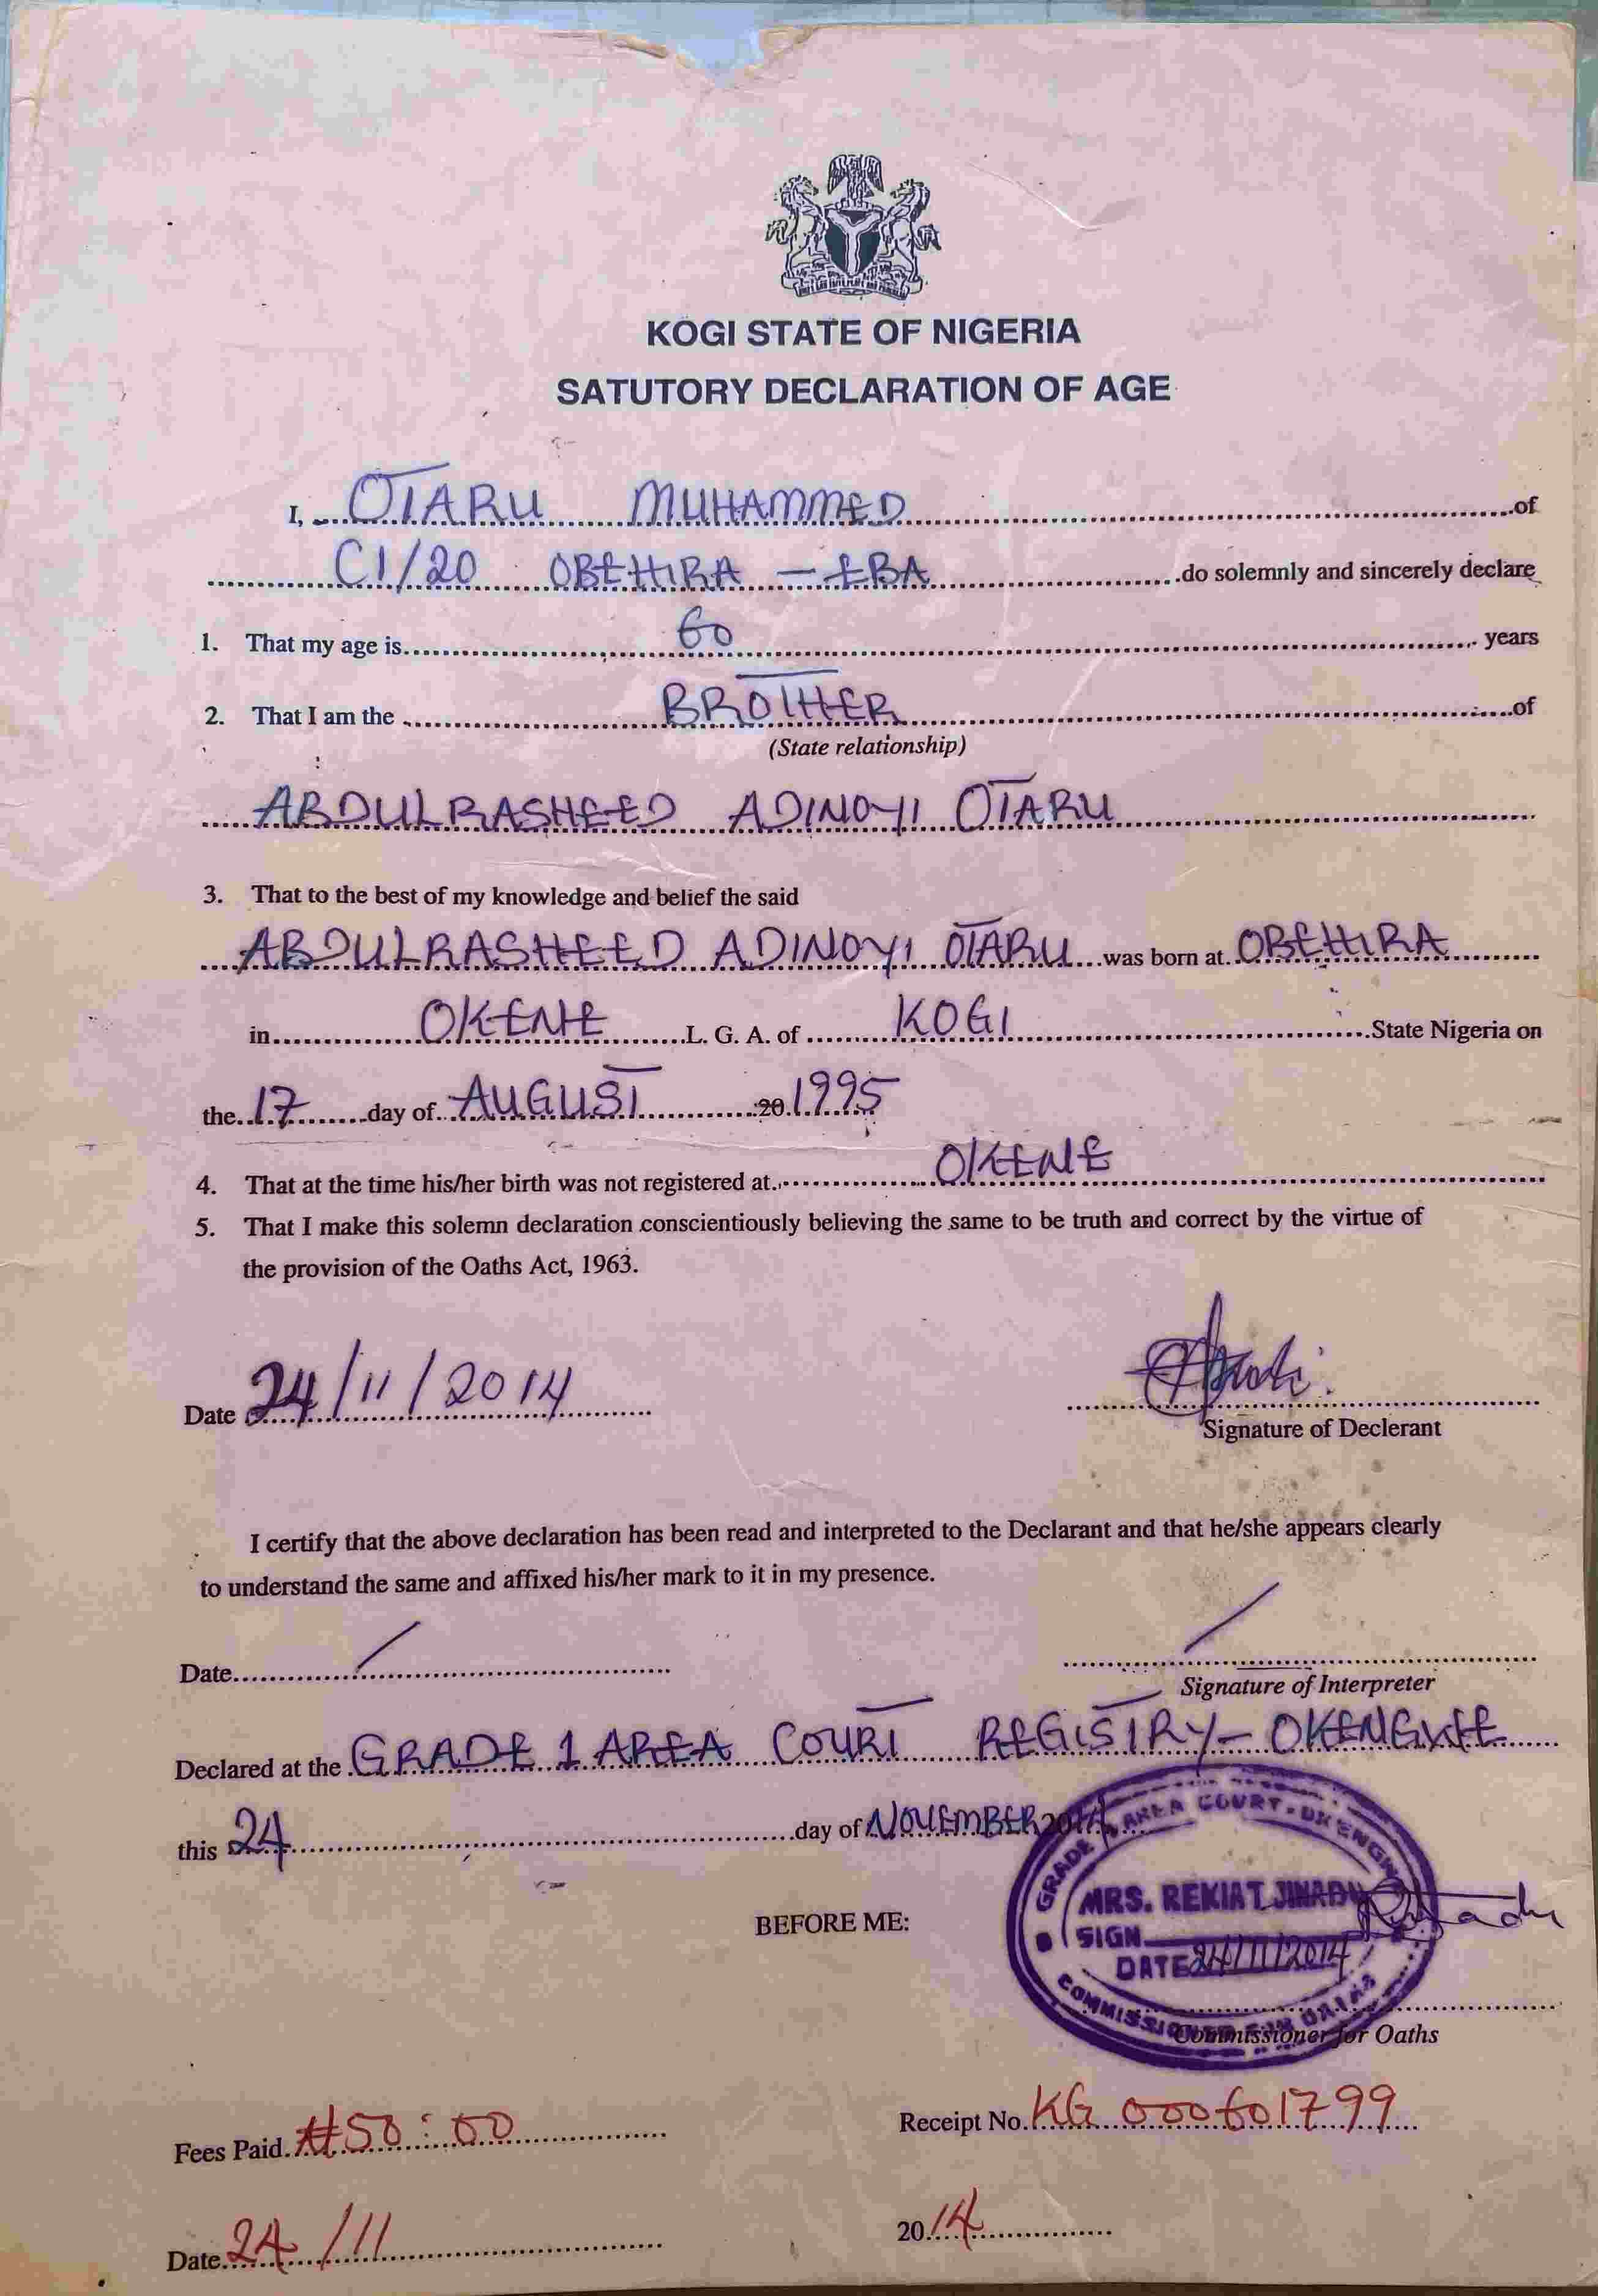 KOGI STATE OF NIGERIA
SATUTORY DECLARATION OF AGE
I, OTARU MUHAMMED of
C1/20 OBEHIRA - EBA do solemnly and sincerely declare
1. That my age is 60 years
2. That I am the BROTHER of
(State relationship)
ABDULRASHEED ADINOYI OTARU
3. That to the best of my knowledge and belief the said
ABDULRASHEED ADINOYI OTARU was born at OBEHIRA
in OKENE L. G. A. of KOGI State Nigeria on
the 17 day of AUGUST 20 1995
4. That at the time his/her birth was not registered at OKENE
5. That I make this solemn declaration conscientiously believing the same to be truth and correct by the virtue of
the provision of the Oaths Act, 1963.
Date 24/11/2014
Signature of Declerant
I certify that the above declaration has been read and interpreted to the Declarant and that he/she appears clearly
to understand the same and affixed his/her mark to it in my presence.
Date /
/
Signature of Interpreter
Declared at the GRADE 1 AREA COURT REGISTRY- OKENGWE
this 24 day of NOVEMBER 2014
GRADE AREA COURT - OKENGWE
BEFORE ME:
MRS. REKIAT JINADU
SIGN
DATE 24/11/2014
COMMISSIONER FOR OATHS
Commissioner for Oaths
Fees Paid ₦50:00 Receipt No. KG 000601799
Date 24/11 2014